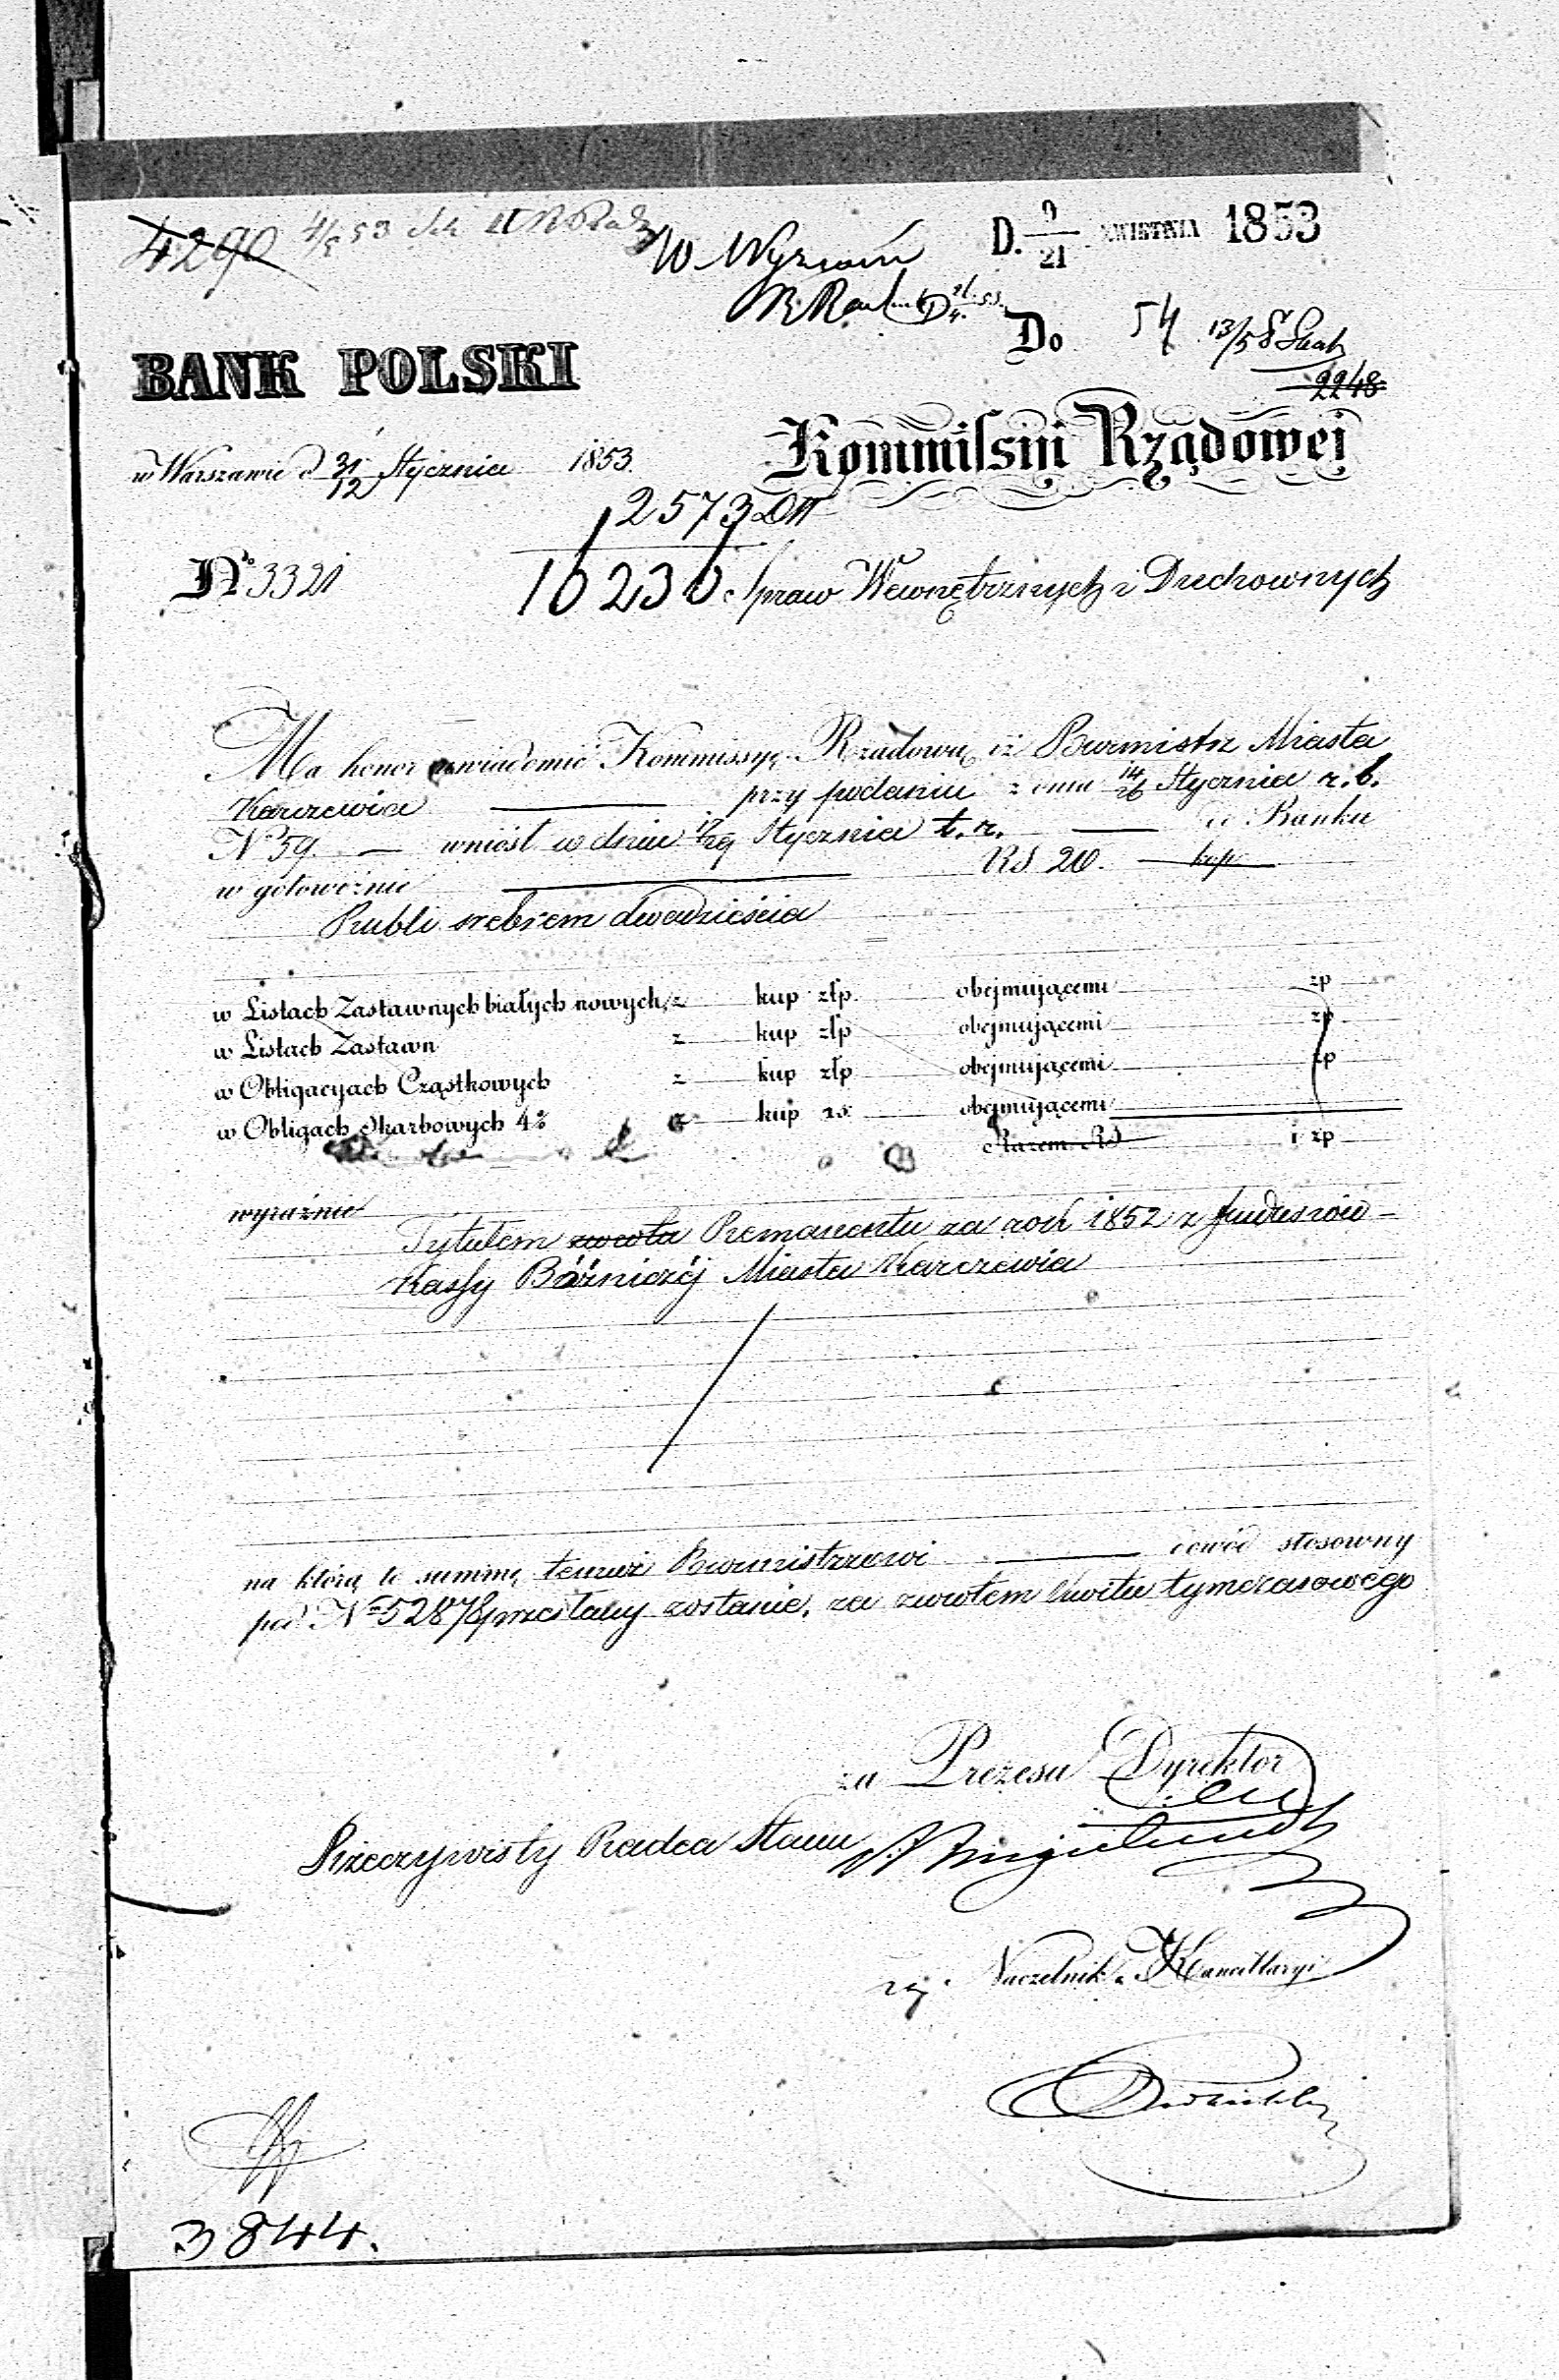 4290
W Wydziale
D. 9/21 KWIETNIA 1853
Do 54 13/5
2248
BANK POLSKI
Kommissyi Rządowej
w Warszawie d 31/12 Stycznia 1853.
12573
No 3321
10230 Spraw Wewnętrznych i Duchownych
Ma honor zawiadomić Kommissyę Rządową iż Burmistrz Miasta
Karczewia — przy podaniu z dnia 14/26 Stycznia r. b.
No 59. — wniósł w dniu 17/29 Stycznia t. r. — do Banku
w gotowiźnie — RS 20. — kop
Rubli srebrem dwadzieścia
w Listach Zastawnych białych nowych z kup złp. obejmującemi zp
w Listach Zastawn z kup złp obejmującemi zp
w Obligacyach Cząstkowych z kup złp obejmującemi zp
w Obligach Skarbowych 4% z kup rs. obejmującemi
Razem RS i zp
wyraźnie
Tytułem Remanentu za rok 1852 z funduszów
Kassy Bóżniczéj Miasta Karczewia
na którą to summę temuż Burmistrzowi — dowód stosowny
pod No 52878 przesłany zostanie, za zwrotem kwitu tymczasowego
za Prezesa Dyrektor
Rzeczywisty Radca Stanu
Naczelnik Kancellaryi
3844.